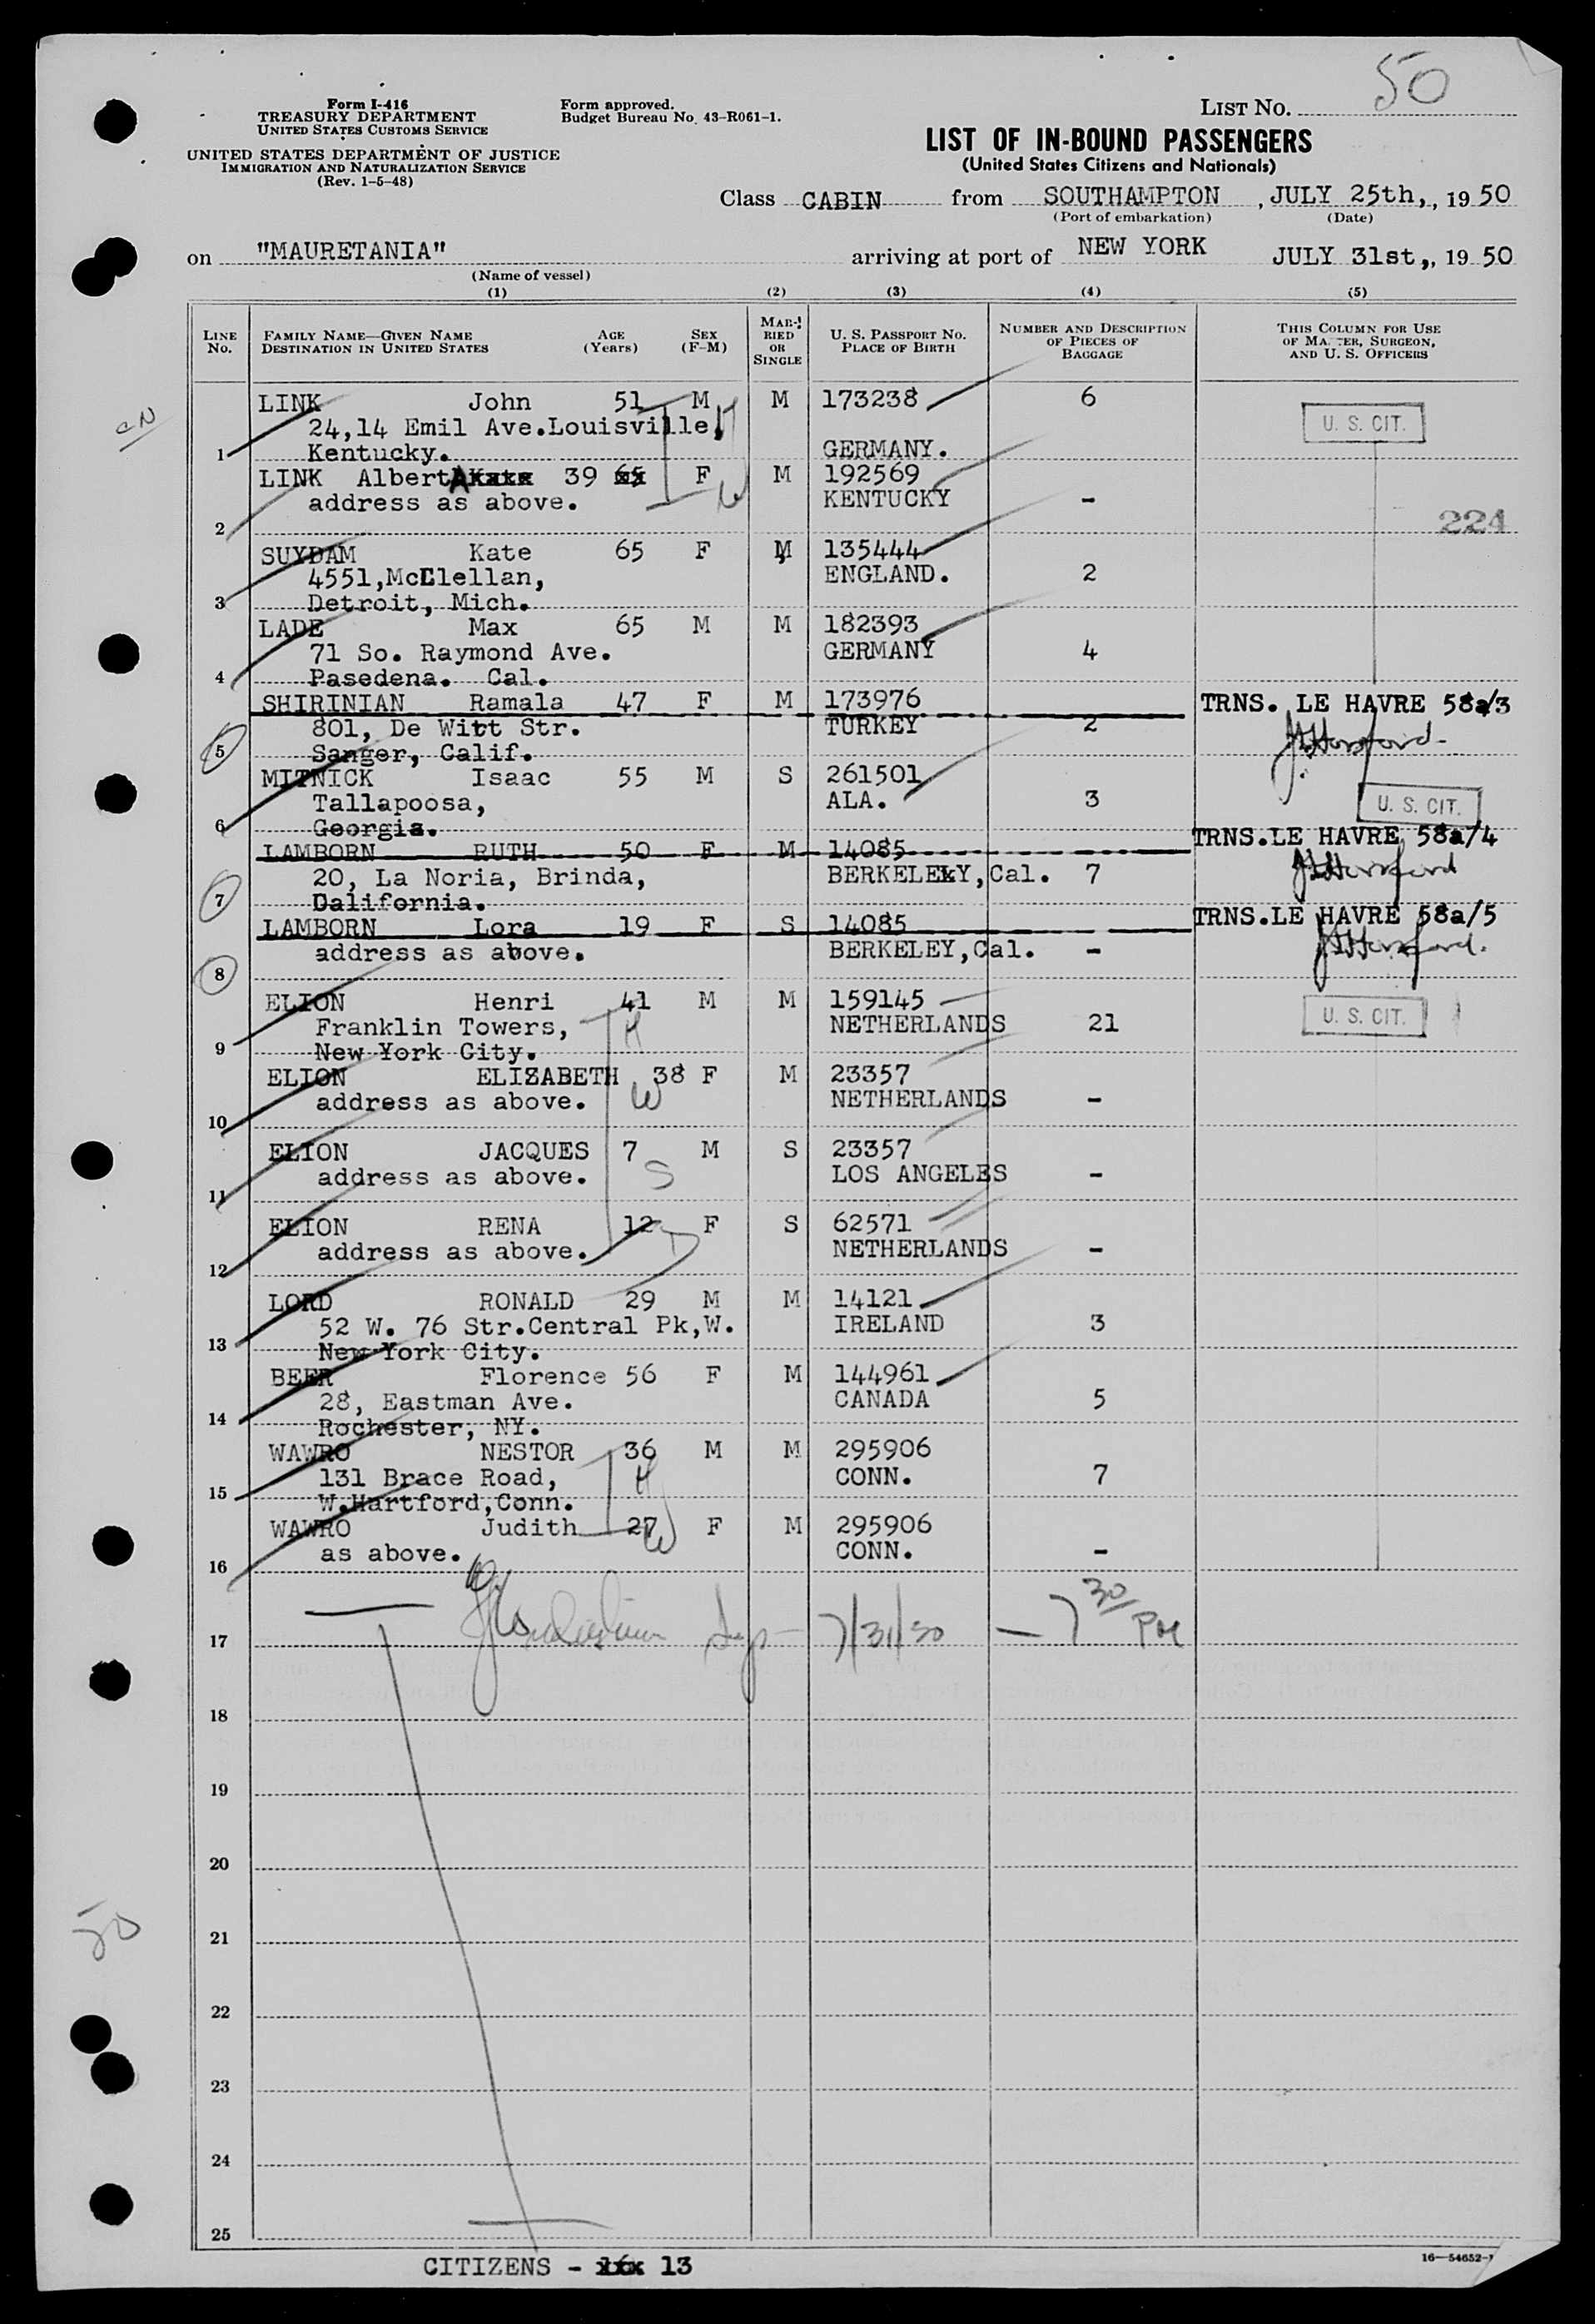 50
Form I-416
TREASURY DEPARTMENT
UNITED STATES CUSTOMS SERVICE
Form approved.
Budget Bureau No. 43-R061-1.
LIST NO.
UNITED STATES DEPARTMENT OF JUSTICE
IMMIGRATION AND NATURALIZATION SERVICE
(Rev. 1-5-48)
LIST OF IN-BOUND PASSENGERS
(United States Citizens and Nationals)
Class CABIN from SOUTHAMPTON, JULY 25th,, 19 50
(Port of embarkation) (Date)
on "MAURETANIA" arriving at port of NEW YORK JULY 31st,, 19 50
(Name of vessel)
(1) (2) (3) (4) (5)
LINE No. FAMILY NAME—GIVEN NAME DESTINATION IN UNITED STATES AGE (Years) SEX (F-M) MARRIED OR SINGLE U. S. PASSPORT No. PLACE OF BIRTH NUMBER AND DESCRIPTION OF PIECES OF BAGGAGE THIS COLUMN FOR USE OF MASTER, SURGEON, AND U. S. OFFICERS
LINK John 51 M M 173238 6
24,14 Emil Ave.Louisville, H U. S. CIT.
1 Kentucky. GERMANY.
LINK AlbertA 39 F M 192569
address as above. W KENTUCKY -
2 224
SUYDAM Kate 65 F M 135444
4551,McClellan, ENGLAND. 2
3 Detroit, Mich.
LADE Max 65 M M 182393
71 So. Raymond Ave. GERMANY 4
4 Pasedena. Cal.
SHIRINIAN Ramala 47 F M 173976 TRNS. LE HAVRE 58a/3
801, De Witt Str. TURKEY 2
5 Sanger, Calif.
MITNICK Isaac 55 M S 261501
Tallapoosa, ALA. 3 U. S. CIT.
6 Georgia.
LAMBORN RUTH 50 F M 14085 TRNS.LE HAVRE 58a/4
20, La Noria, Brinda, BERKELEY,Cal. 7
7 California.
LAMBORN Lora 19 F S 14085 TRNS.LE HAVRE 58a/5
address as above. BERKELEY,Cal. -
8
ELION Henri 41 M M 159145
Franklin Towers, H NETHERLANDS 21 U. S. CIT.
9 New York City.
ELION ELIZABETH 38 F M 23357
address as above. W NETHERLANDS -
10
ELION JACQUES 7 M S 23357
address as above. S LOS ANGELES -
11
ELION RENA 12 F S 62571
address as above. D NETHERLANDS -
12
LORD RONALD 29 M M 14121
52 W. 76 Str.Central Pk,W. IRELAND 3
13 New York City.
BEER Florence 56 F M 144961
28, Eastman Ave. CANADA 5
14 Rochester, NY.
WAWRO NESTOR 36 M M 295906
131 Brace Road, H CONN. 7
15 W.Hartford,Conn.
WAWRO Judith 27 W F M 295906
as above. CONN. -
16
17 7/31/50 — 7 30 PM
18
19
20
21
50
22
23
24
25
CITIZENS - 13
16—54652-1